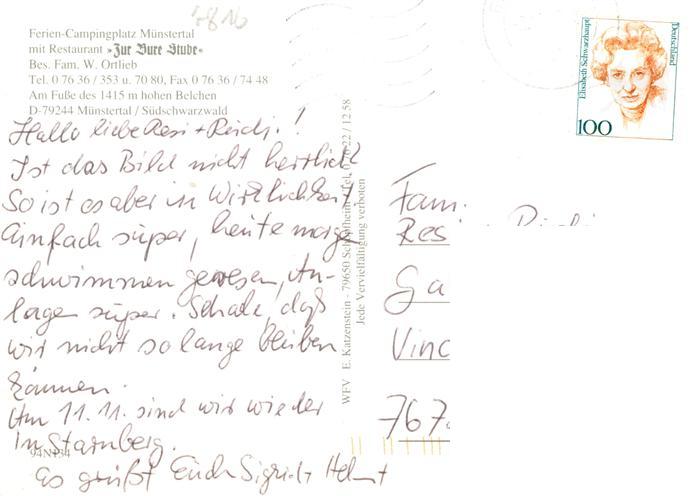 7816
Ferien-Campingplatz Münstertal
mit Restaurant »Zur Bure Stube«
Bes. Fam. W. Ortlieb
Tel. 0 76 36 / 353 u. 70 80, Fax 0 76 36 / 74 48
Am Fuße des 1415 m hohen Belchen
D-79244 Münstertal / Südschwarzwald
Hallo liebe Resi + Reidi.!
Ist das Bild nicht herrlich?
So ist es aber in Wirklichkeit.
Einfach super, heute morgen
schwimmen gewesen, An-
lagen super. Schade, daß
wir nicht so lange bleiben
können.
Am 11.11. sind wir wieder
in Starnberg.
94N134
Es grüßt Euch Sigrid + Helmut
WFV E. Katzenstein - 79650 Schopfheim - Tel. 0 76 22 / 12 58
Jede Vervielfältigung verboten
Elisabeth Schwarzhaupt
Deutschland
100
Fam.
Res
Ga
Vinc
767